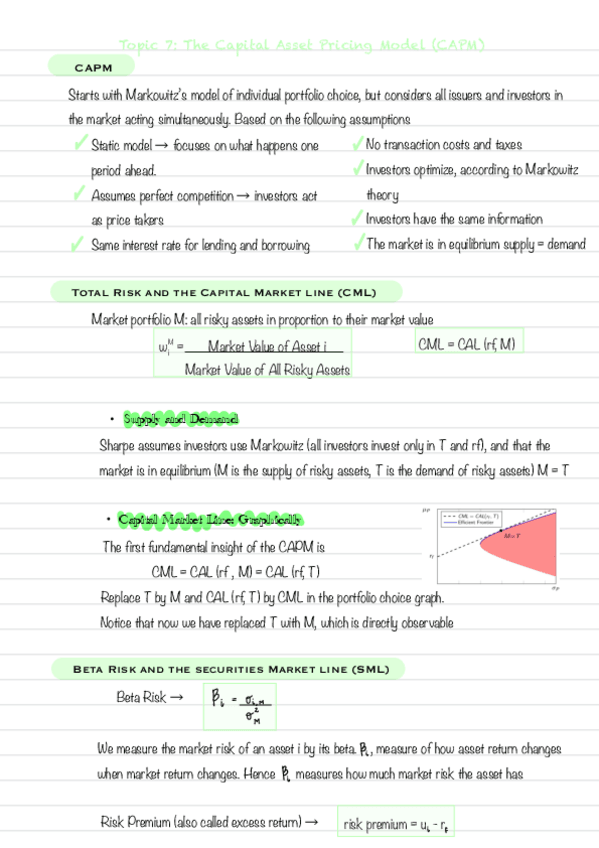 Topic 7: The Capital Asset Pricing Model (CAPM)
CAPM
Starts with Markowitz's model of individual portfolio choice, but considers all issuers and investors in
the market acting simultaneously. Based on the following assumptions
✓ Static model → focuses on what happens one
period ahead.
✓ Assumes perfect competition → investors act
as price takers
✓ Same interest rate for lending and borrowing
✓ No transaction costs and taxes
✓ Investors optimize, according to Markowitz
theory
✓ Investors have the same information
✓ The market is in equilibrium supply = demand
TOTAL RISK AND THE CAPITAL MARKET LINE (CML)
Market portfolio M: all risky assets in proportion to their market value
wᵢᴹ = Market Value of Asset i
Market Value of All Risky Assets
CML = CAL (rf, M)
• Supply and Demand
Sharpe assumes investors use Markowitz (all investors invest only in T and rf), and that the
market is in equilibrium (M is the supply of risky assets, T is the demand of risky assets) M = T
• Capital Market Line: Graphically
The first fundamental insight of the CAPM is
CML = CAL (rf , M) = CAL (rf, T)
Replace T by M and CAL (rf, T) by CML in the portfolio choice graph.
Notice that now we have replaced T with M, which is directly observable
μp
CML = CAL(rf, T)
Efficient Frontier
M = T
rf
σp
BETA RISK AND THE SECURITIES MARKET LINE (SML)
Beta Risk → βᵢ = σᵢ,M
σ²M
We measure the market risk of an asset i by its beta βᵢ, measure of how asset return changes
when market return changes. Hence βᵢ measures how much market risk the asset has
Risk Premium (also called excess return) → risk premium = uᵢ - rF